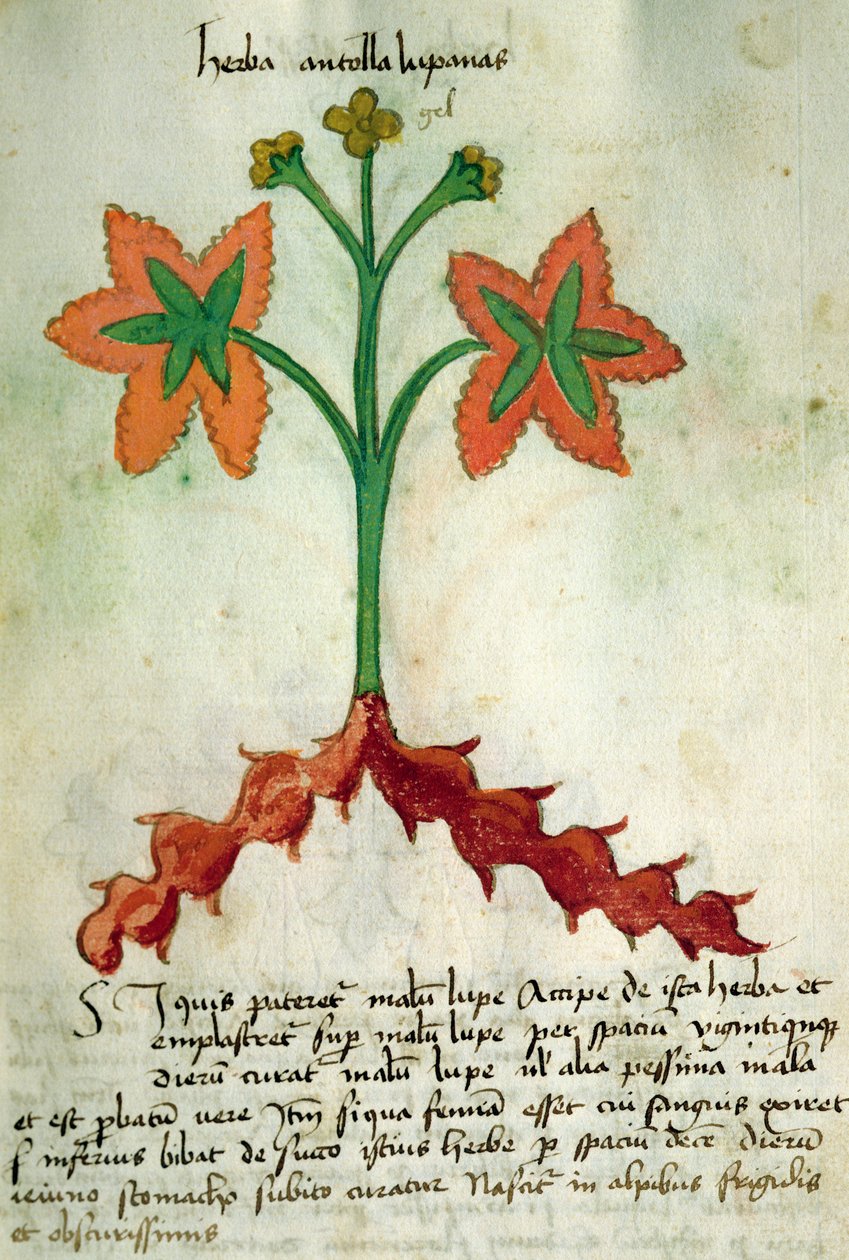 herba antolla lupanas
gel
S Iquis pateret᷑ malū lupe Accipe de ista herba et
emplastret᷑ sup̄ malū lupe per spaciū vigintiquinqꝫ
dierū curat᷑ malū lupe ul᷑ alia pessima mala
et est ꝓbatū uere Itm̄ si qua femīa esset cui sanguis exiret
inferius bibat de succo istius herbe ꝑ spaciū decē dierū
ieiuno stomacho subito curatur Nascit᷑ in alpibus frigidis
et obscurissimis